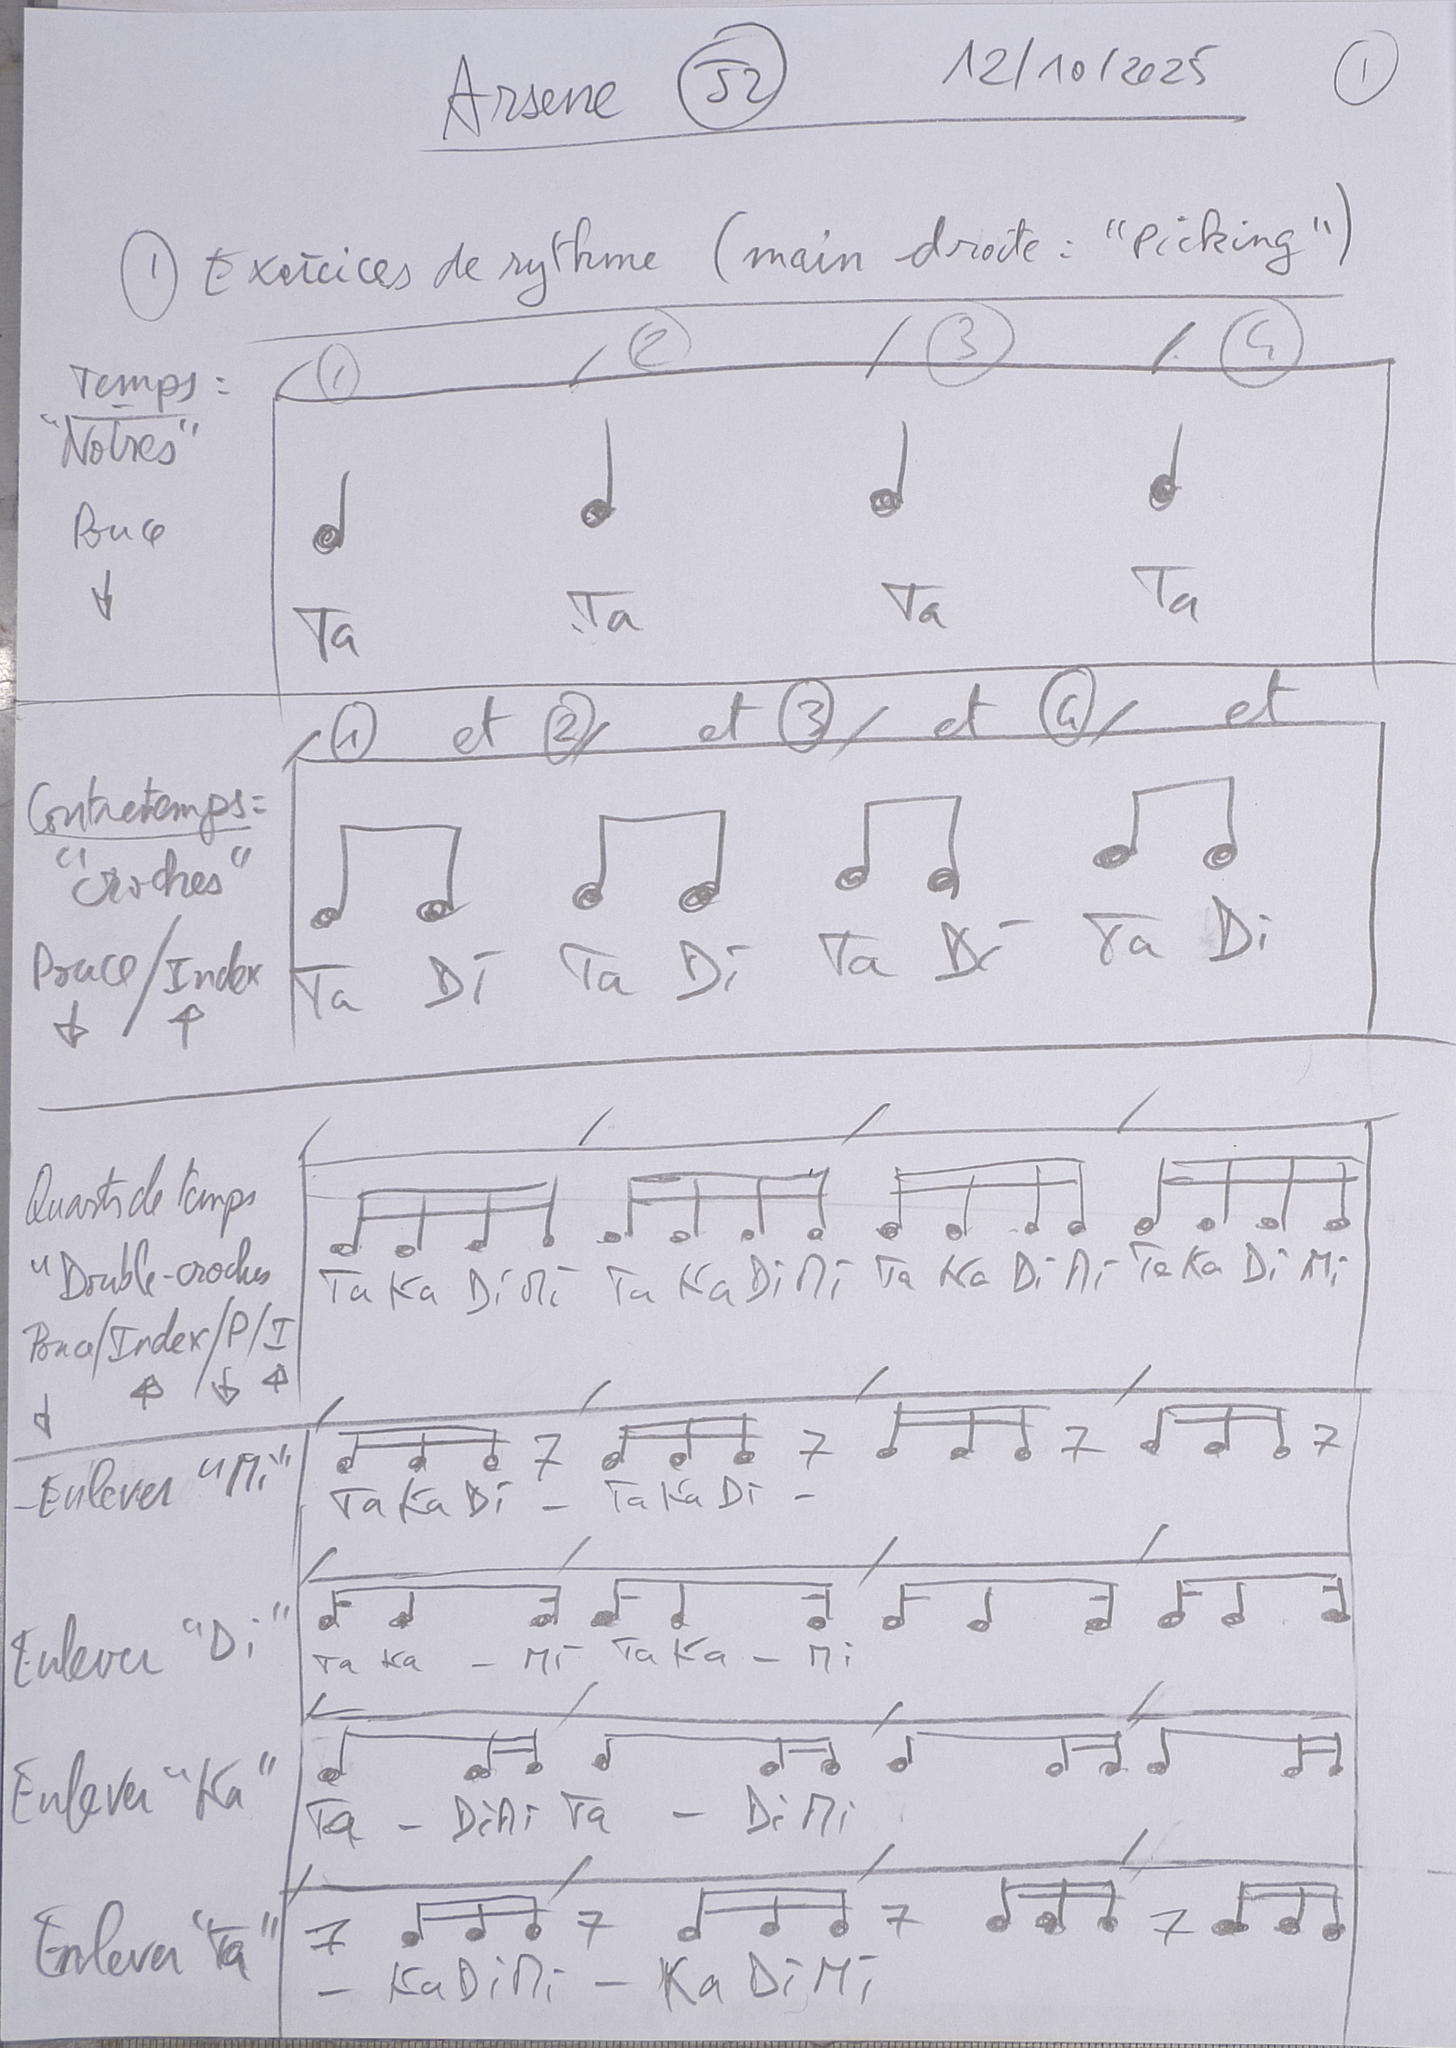 Arsene 52 12/10/2025 1
1 Exercices de rythme (main droite : "picking")
1 / 2 / 3 / 4
Temps :
"Noires"
Pouce
↓
Ta Ta Ta Ta
/ 1 et 2 / et 3 / et 4 / et
Contretemps =
"croches"
Pouce / Index
↓ ↑
Ta Di Ta Di Ta Di Ta Di
Quarts de temps
"Double-croches
Pouce/Index/P/I
↓ ↑ ↓ ↑
Ta Ka Di Mi Ta Ka Di Mi Ta Ka Di Mi Ta Ka Di Mi
- Enlever "Mi"
Ta Ka Di - Ta Ka Di -
Enlever "Di"
Ta Ka - Mi Ta Ka - Mi
Enlever "Ka"
Ta - Di Mi Ta - Di Mi
Enlever "Ta"
- Ka Di Mi - Ka Di Mi